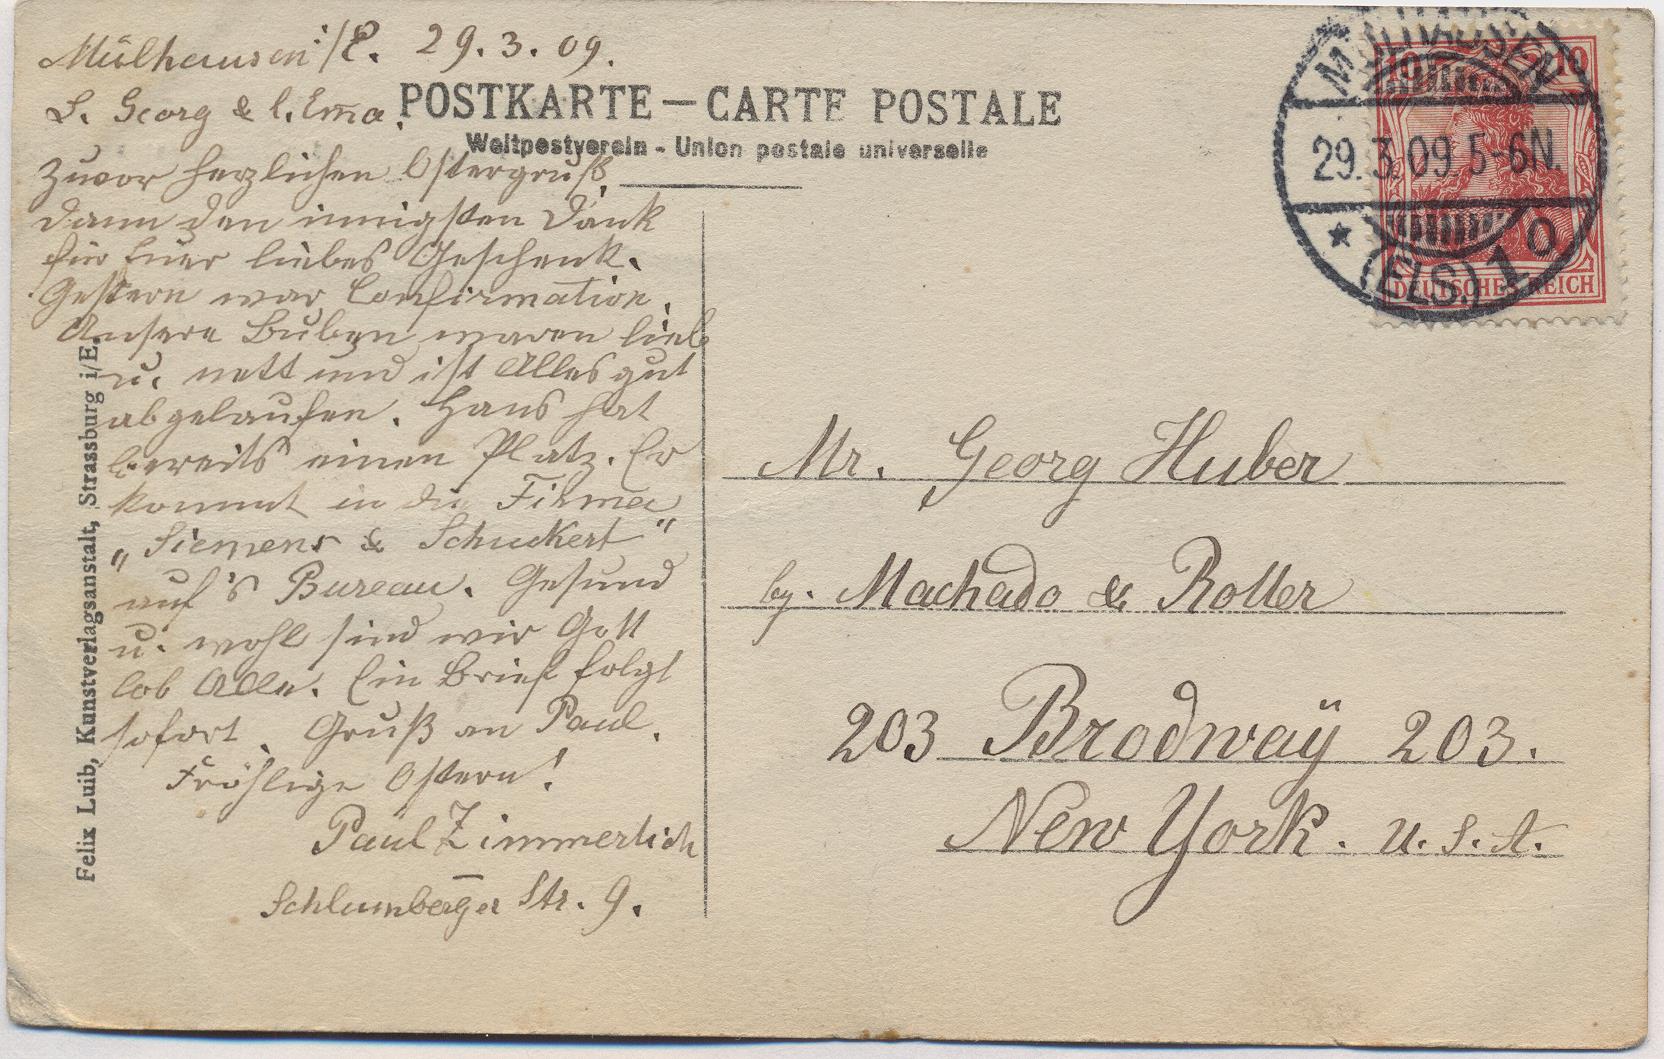 Mülhausen i/E. 29.3.09.
L. Georg & l. Ema.
POSTKARTE — CARTE POSTALE
Weltpostverein - Union postale universelle
Zuvor herzlichen Ostergruß,
dann den innigsten Dank
für Euer liebes Geschenk.
Gestern war Confirmation.
Unsere Buben waren lieb
u. nett und ist Alles gut
abgelaufen. Hans hat
bereits einen Platz. Er
kommt in die Firma
„Siemens & Schuckert"
auf's Bureau. Gesund
u. wohl sind wir Gott
lob Alle. Ein Brief folgt
sofort. Gruß an Paul.
Fröhlige Ostern!
Paul Zimmerlich
Schlumberger Str. 9.
Felix Luib, Kunstverlagsanstalt, Strassburg i/E.
MÜLHAUSEN
29.3.09.5-6N.
(ELS.) 1 o
10 10
DEUTSCHES REICH
Mr. Georg Huber
by. Machado & Roller
203 Brodwaÿ 203.
New York. U.S.A.